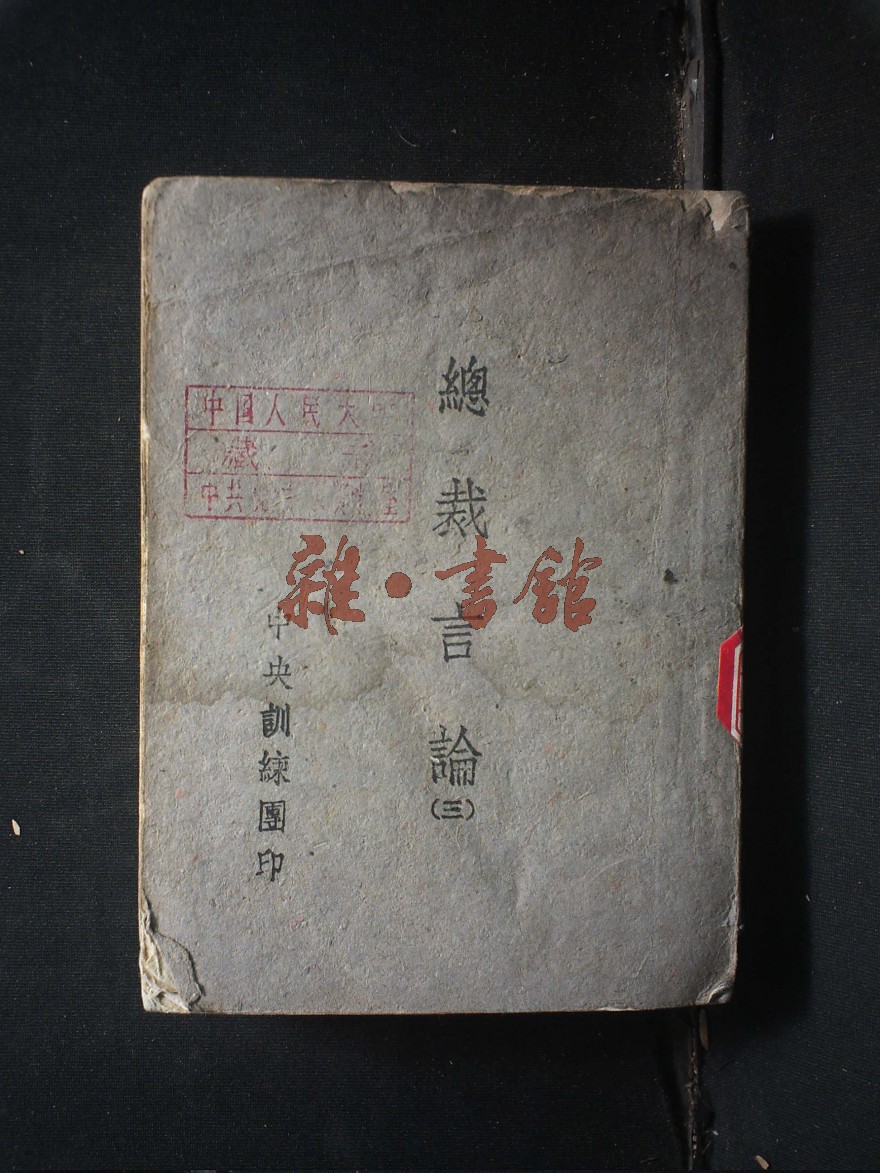 總裁言論
(三)
中央訓練團印
中国人民大学
藏
中共
雜·書館